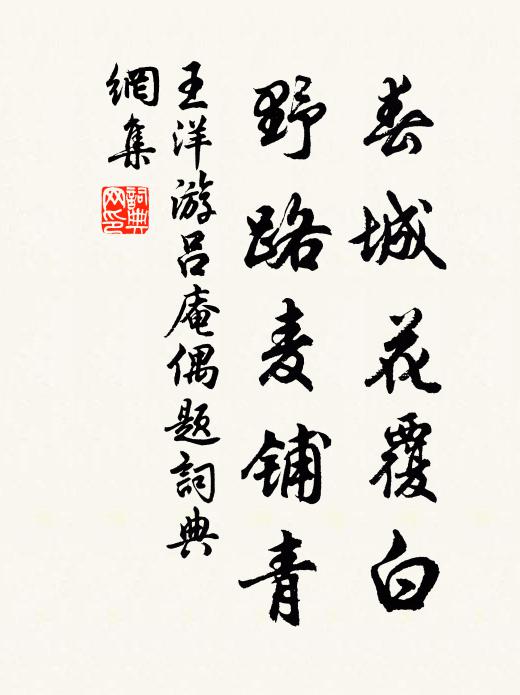 春城花覆白
野路麦铺青
王洋游吕庵偶题詞典
網集
詞典网印